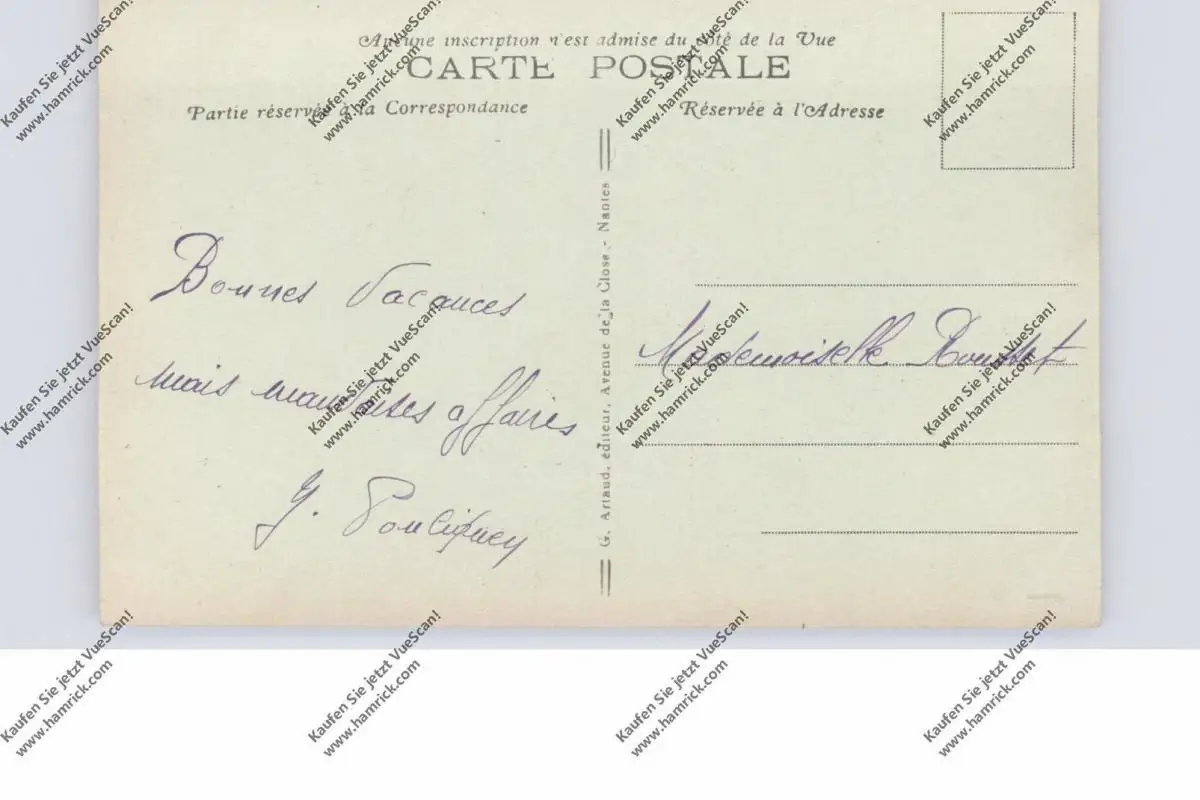 Aucune inscription n'est admise du côté de la Vue
CARTE POSTALE
Partie réservée à la Correspondance
Réservée à l'Adresse
Bonnes Vacances
mais mauvaises affaires
G. Artaud, éditeur, Avenue de la Close - Nantes
Mademoiselle
Kaufen Sie jetzt VueScan!
www.hamrick.com
Kaufen Sie jetzt VueScan!
www.hamrick.com
Kaufen Sie jetzt VueScan!
www.hamrick.com
Kaufen Sie jetzt VueScan!
www.hamrick.com
Kaufen Sie jetzt VueScan!
www.hamrick.com
Kaufen Sie jetzt VueScan!
www.hamrick.com
Kaufen Sie jetzt VueScan!
www.hamrick.com
Kaufen Sie jetzt VueScan!
www.hamrick.com
Kaufen Sie jetzt VueScan!
www.hamrick.com
Kaufen Sie jetzt VueScan!
www.hamrick.com
Kaufen Sie jetzt VueScan!
www.hamrick.com
Kaufen Sie jetzt VueScan!
www.hamrick.com